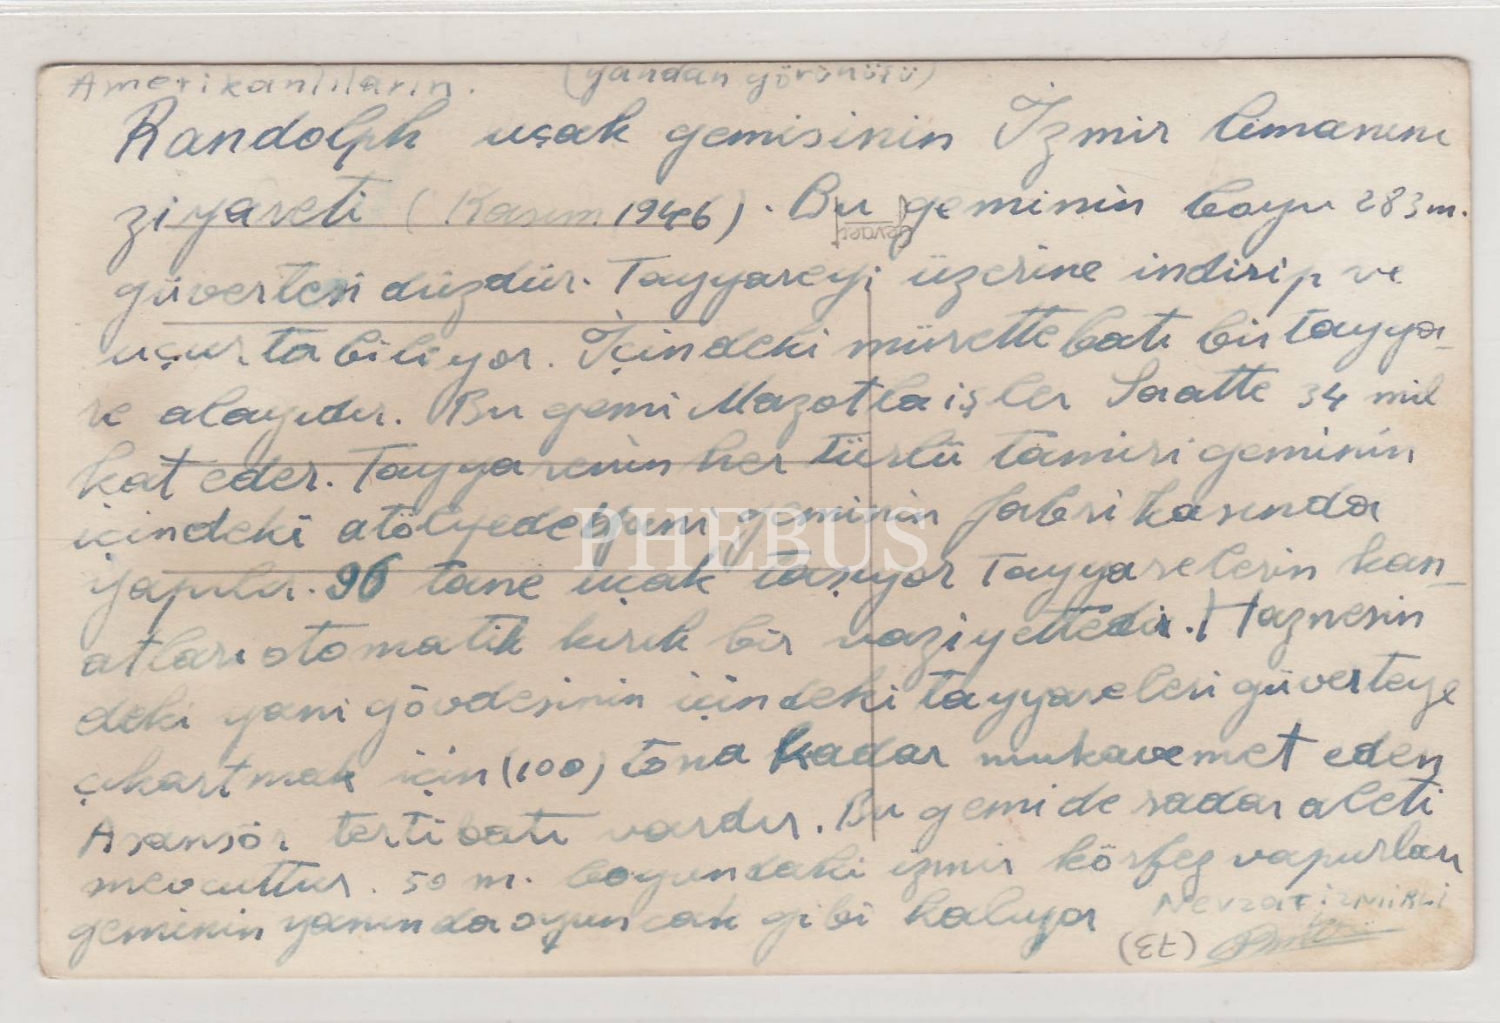 Amerikanlıların. (yandan görünüşü)
Randolph uçak gemisinin İzmir limanını
ziyareti (Kasım 1946). Bu geminin boyu 283 m.
güvertesi düzdür. Tayyareyi üzerine indirip ve
uçurtabiliyor. İçindeki mürettebatı bir tayya-
re alayıdır. Bu gemi Mazotla işler Saatte 34 mil
kat eder. Tayyarenin her türlü tamiri geminin
içindeki atölyede geminin fabrikasında
yapılır. 96 tane uçak taşıyor Tayyarelerin kan-
atları otomatik kırık bir vaziyettedir. Haznesin
deki yani gövdesinin içindeki tayyareleri güverteye
çıkartmak için (100) tona kadar mukavemet eden
Asansör tertibatı vardır. Bu gemide radar aleti
mevcuttur. 50 m. boyundaki izmir körfez vapurları
geminin yanında oyuncak gibi kalıyor
Nevzat izmirli
(73)
PHEBUS